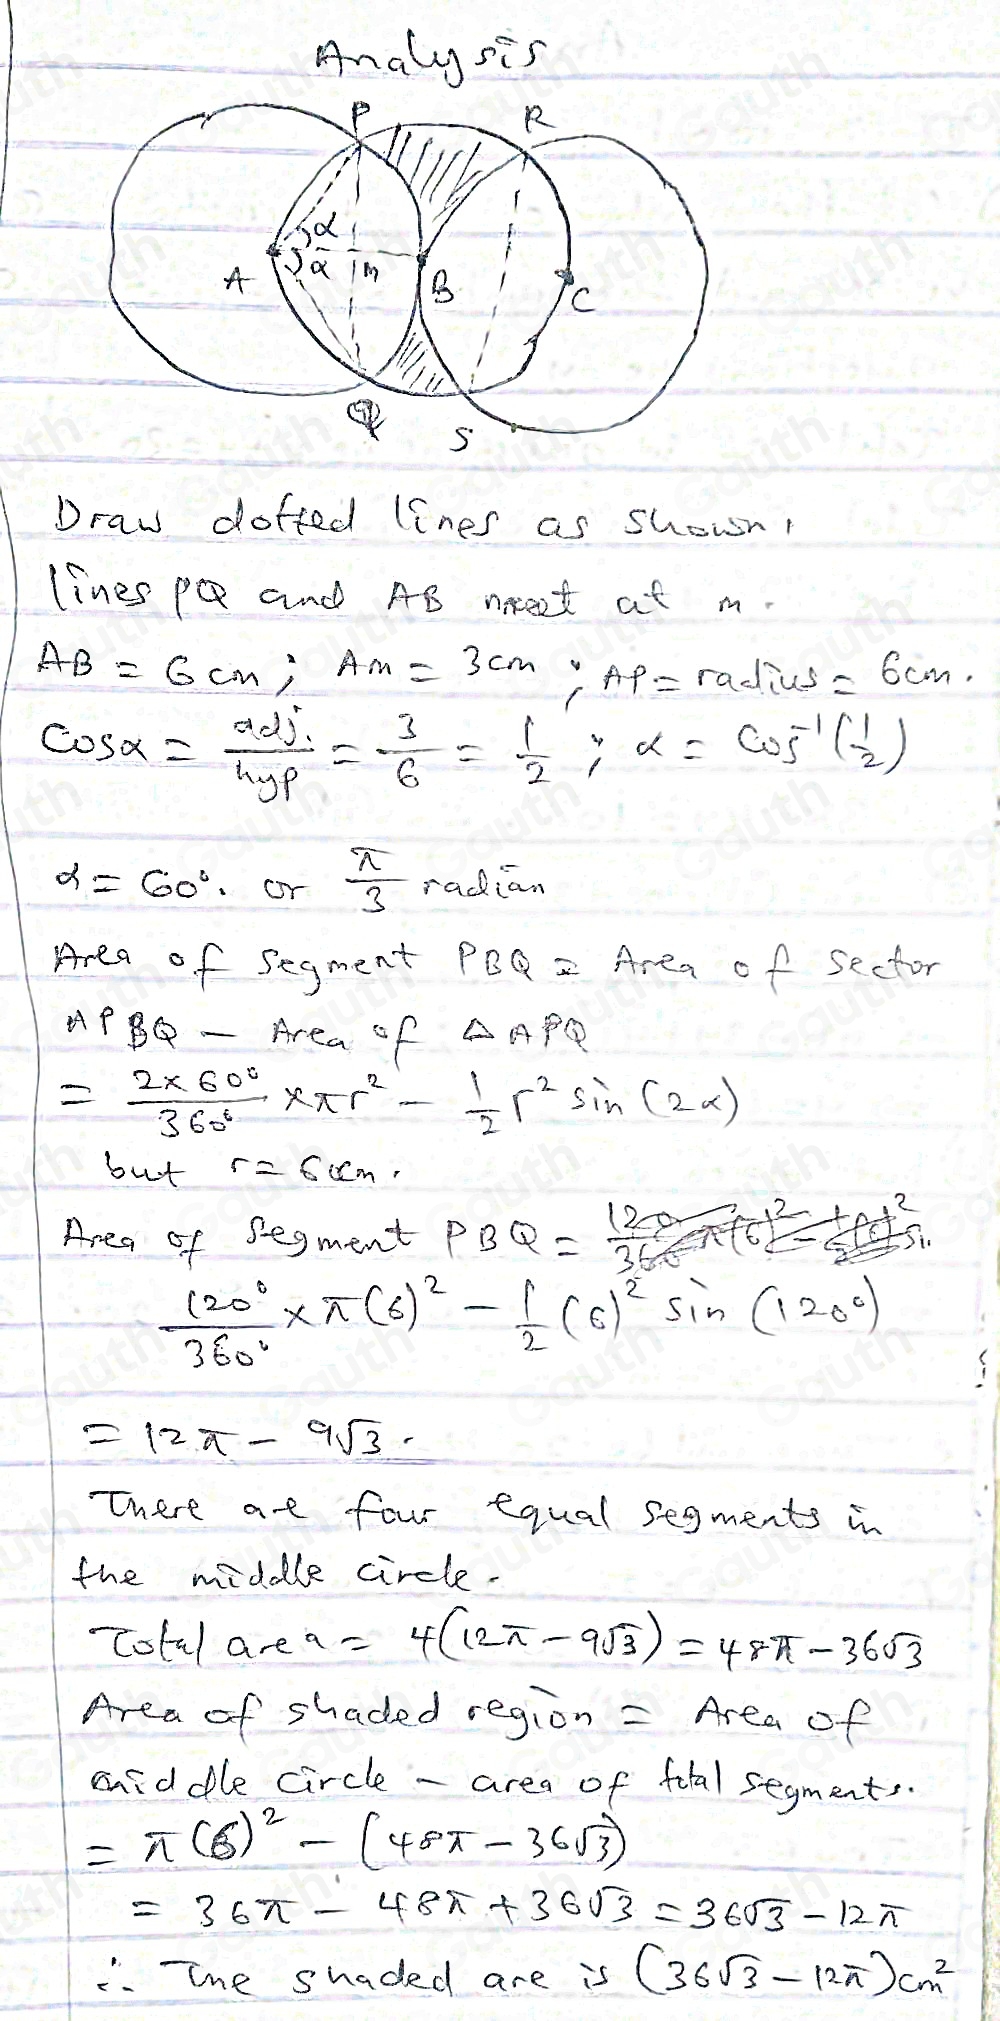 Analysis
P R
α
A α m B C
Q S
Draw dotted lines as shown,
lines PQ and AB meet at m.
AB = 6cm; Am = 3cm; AP = radius = 6cm.
Cosα = adj./hyp = 3/6 = 1/2; α = Cos⁻¹(1/2)
α = 60°. or π/3 radian
Area of segment PBQ = Area of sector
APBQ - Area of △APQ
= 2×60°/360° × πr² - 1/2 r² sin(2α)
but r = 6cm.
Area of segment PBQ =
120°/360° × π(6)² - 1/2 (6)² sin (120°)
= 12π - 9√3.
There are four equal segments in
the middle circle.
Total area = 4(12π - 9√3) = 48π - 36√3
Area of shaded region = Area of
middle circle - area of total segments.
= π(6)² - (48π - 36√3)
= 36π - 48π + 36√3 = 36√3 - 12π
∴ The shaded are is (36√3 - 12π)cm²